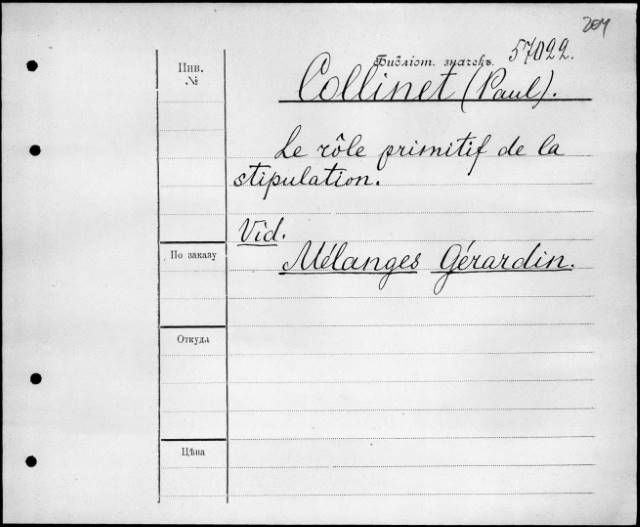 204
Инв.
№
Библіот. значекъ. 57022.
Collinet (Paul).
Le rôle primitif de la
stipulation.
Vid.
Mélanges Gérardin.
По заказу
Откуда
Цѣна